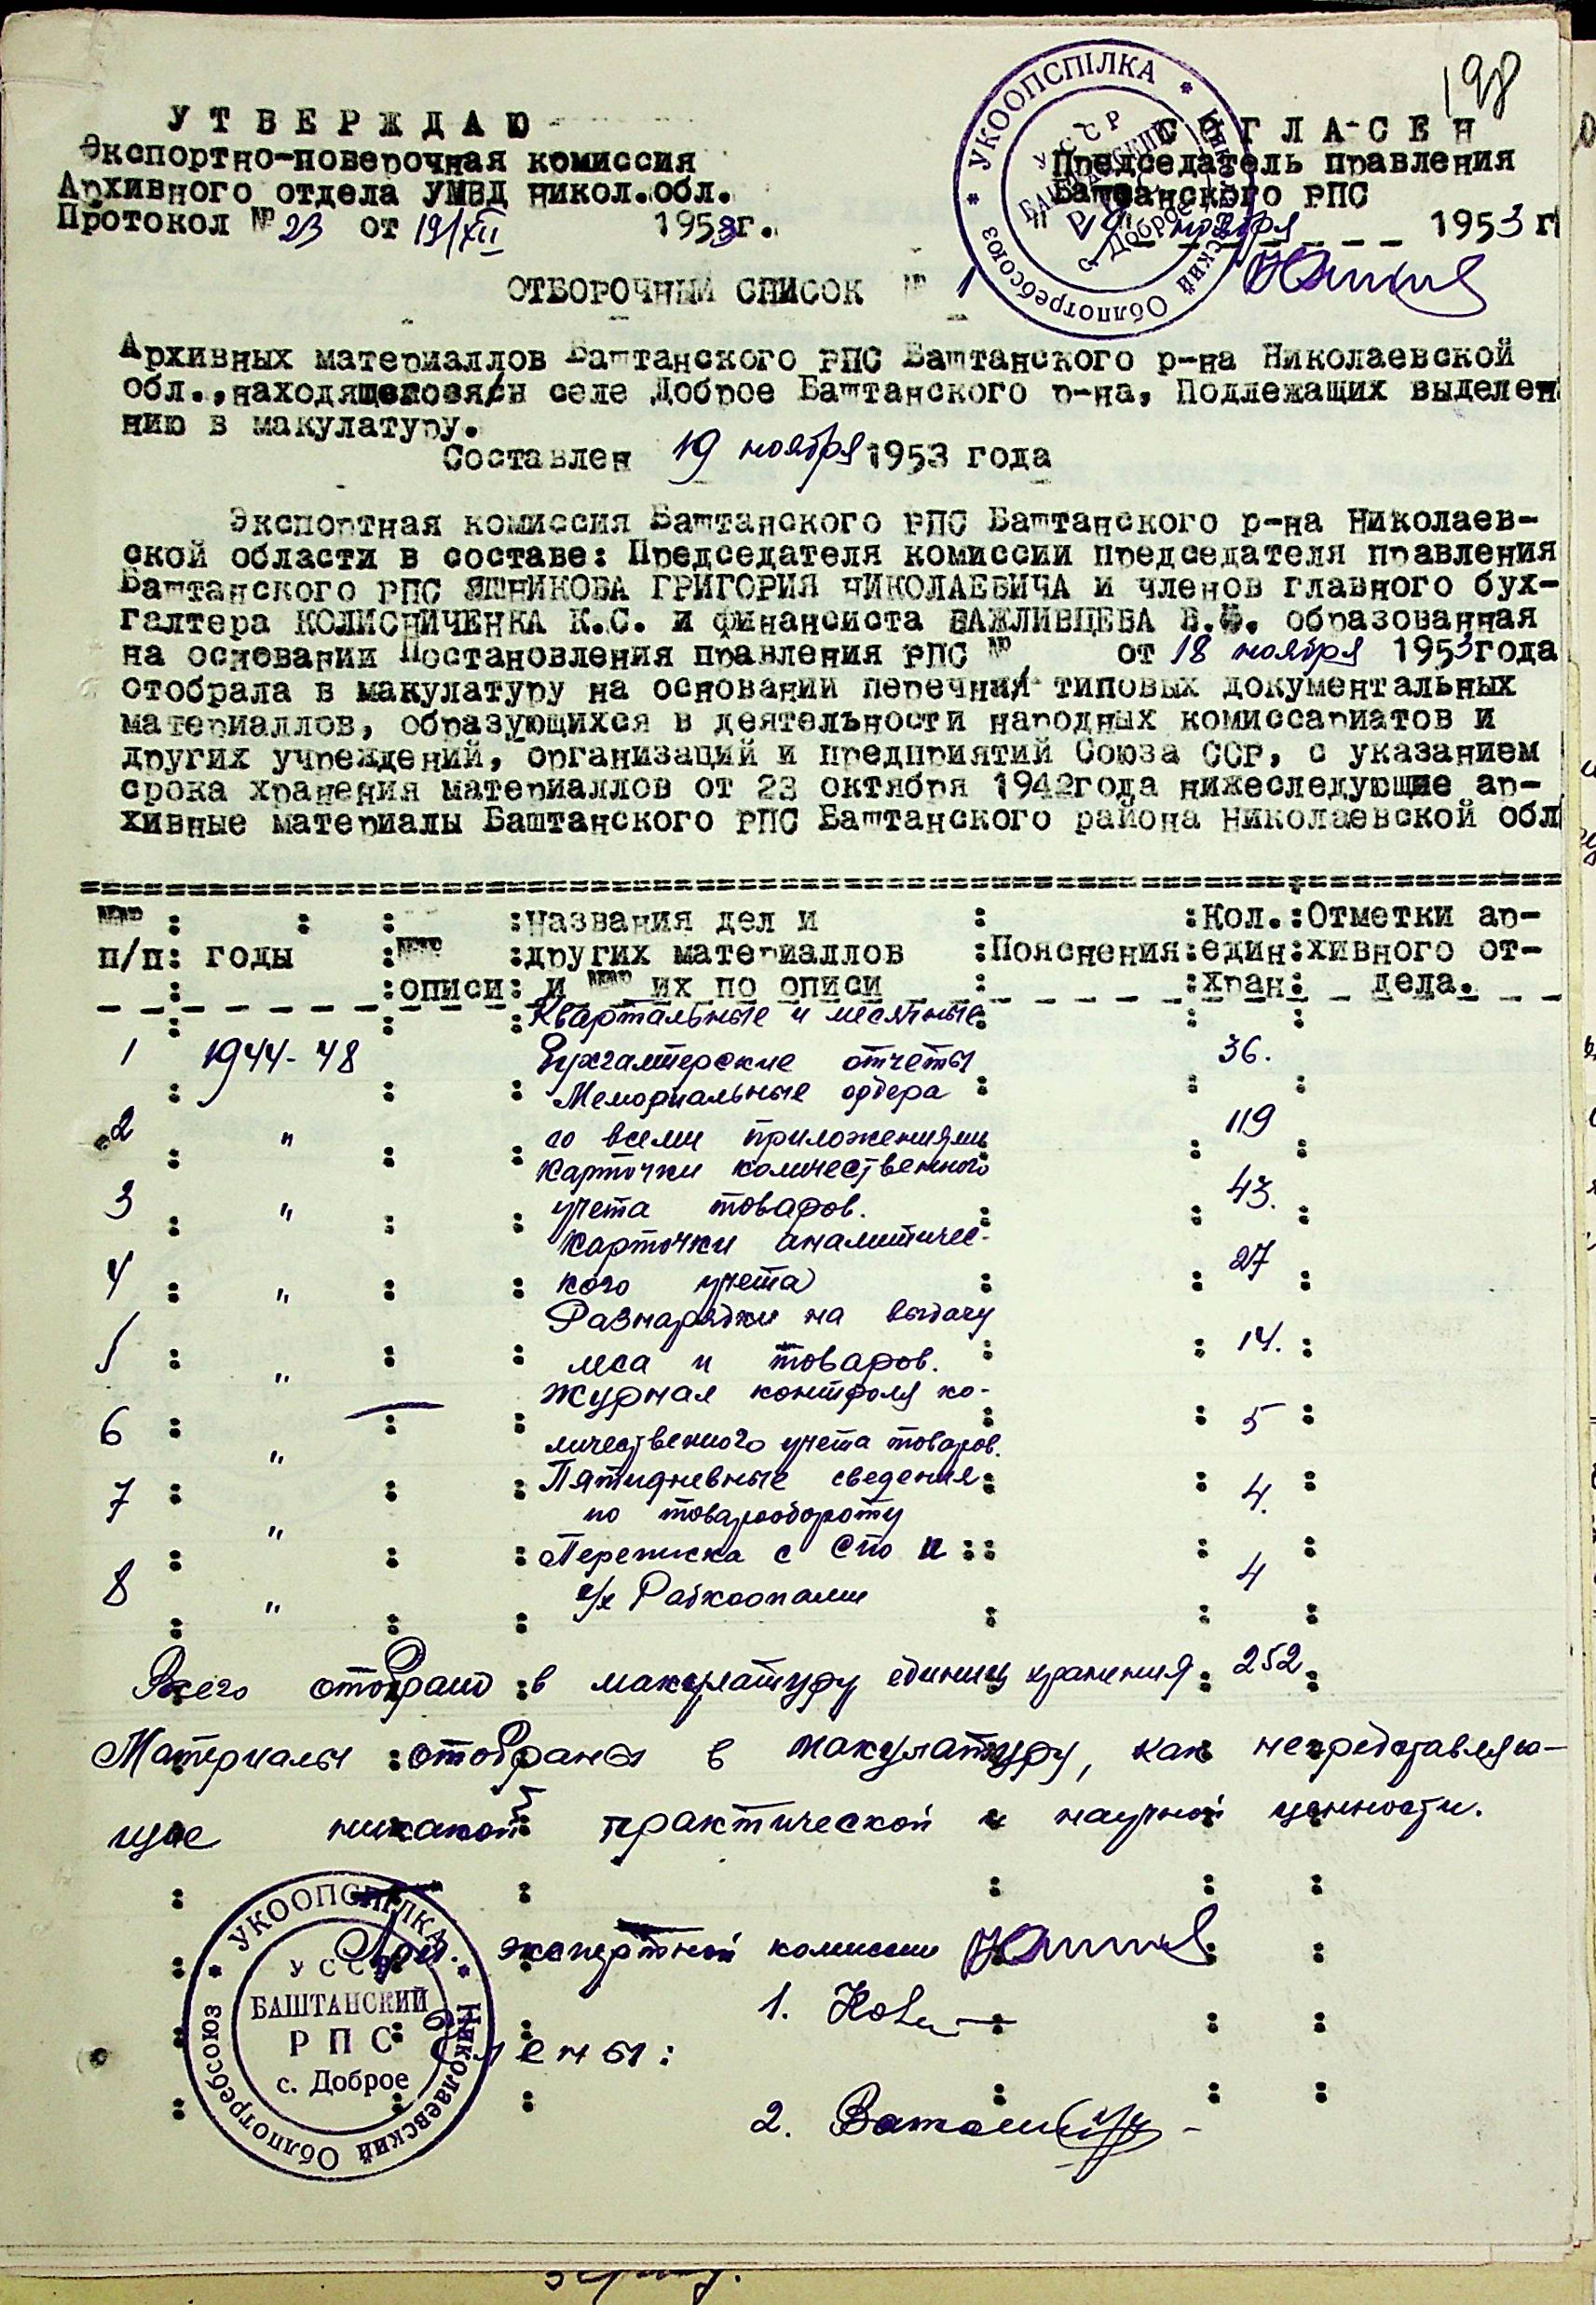 198
У Т В Е Р Ж Д А Ю
Экспортно-поверочная комиссия
Архивного отдела УМВД Никол.обл.
Протокол № 23 от 19/XII 1953г.
С О Г Л А С Е Н
Председатель правления
Баштанского РПС
"19" ноября 1953 г
УКООПСПІЛКА * Николаевский Облпотребсоюз *
УССР
БАШТАНСКИЙ
РПС
с. Доброе
ОТБОРОЧНЫЙ СПИСОК № 1
Архивных материаллов Баштанского РПС Баштанского р-на Николаевской
обл.,находящегося/в селе Доброе Баштанского р-на, Подлежащих выделен
нию в макулатуру.
Составлен 19 ноября 1953 года
Экспортная комиссия Баштанского РПС Баштанского р-на Николаев-
ской области в составе: Председателя комиссии председателя правления
Баштанского РПС ЯШНИКОВА ГРИГОРИЯ НИКОЛАЕВИЧА и членов главного бух-
галтера КОЛИСНИЧЕНКА К.С. и финансиста ВАЖЛИВЦЕВА В.Ф. образованная
на основании Постановления правления РПС № от 18 ноября 1953года
отобрала в макулатуру на основании перечня типовых документальных
материаллов, образующихся в деятельности народных комиссариатов и
других учреждений, организаций и предприятий Союза ССР, с указанием
срока хранения материаллов от 23 октября 1942года нижеследующие ар-
хивные материалы Баштанского РПС Баштанского района Николаевской обл
№№ : : :Названия дел и : :Кол.:Отметки ар-
п/п: годы :№№ :других материаллов :Пояснения:един:хивного от-
: :описи: и №№ их по описи : :хран: дела.
Квартальные и месячные
1 1944-48 Бухгалтерские отчеты 36.
Мемориальные ордера
2 " со всеми приложениями 119
Карточки количественного
3 " учета товаров. 43.
Карточки аналитичес-
4 " кого учета 27
Разнарядки на выдачу
5 " леса и товаров. 14.
Журнал контроля ко-
6 " личественного учета товаров. 5
Пятидневные сведения
7 " по товарообороту 4.
Переписка с СПО и
8 " с/х Рабкоопами 4
Всего отобрано в макулатуру единиц хранения 252.
Материалы отобраны в макулатуру, как непредставляю-
щие никакой практической и научной ценности.
Пред. экспертной комиссии
1.
Члены:
2.
УКООПСПІЛКА * Николаевский Облпотребсоюз *
УССР
БАШТАНСКИЙ
РПС
с. Доброе